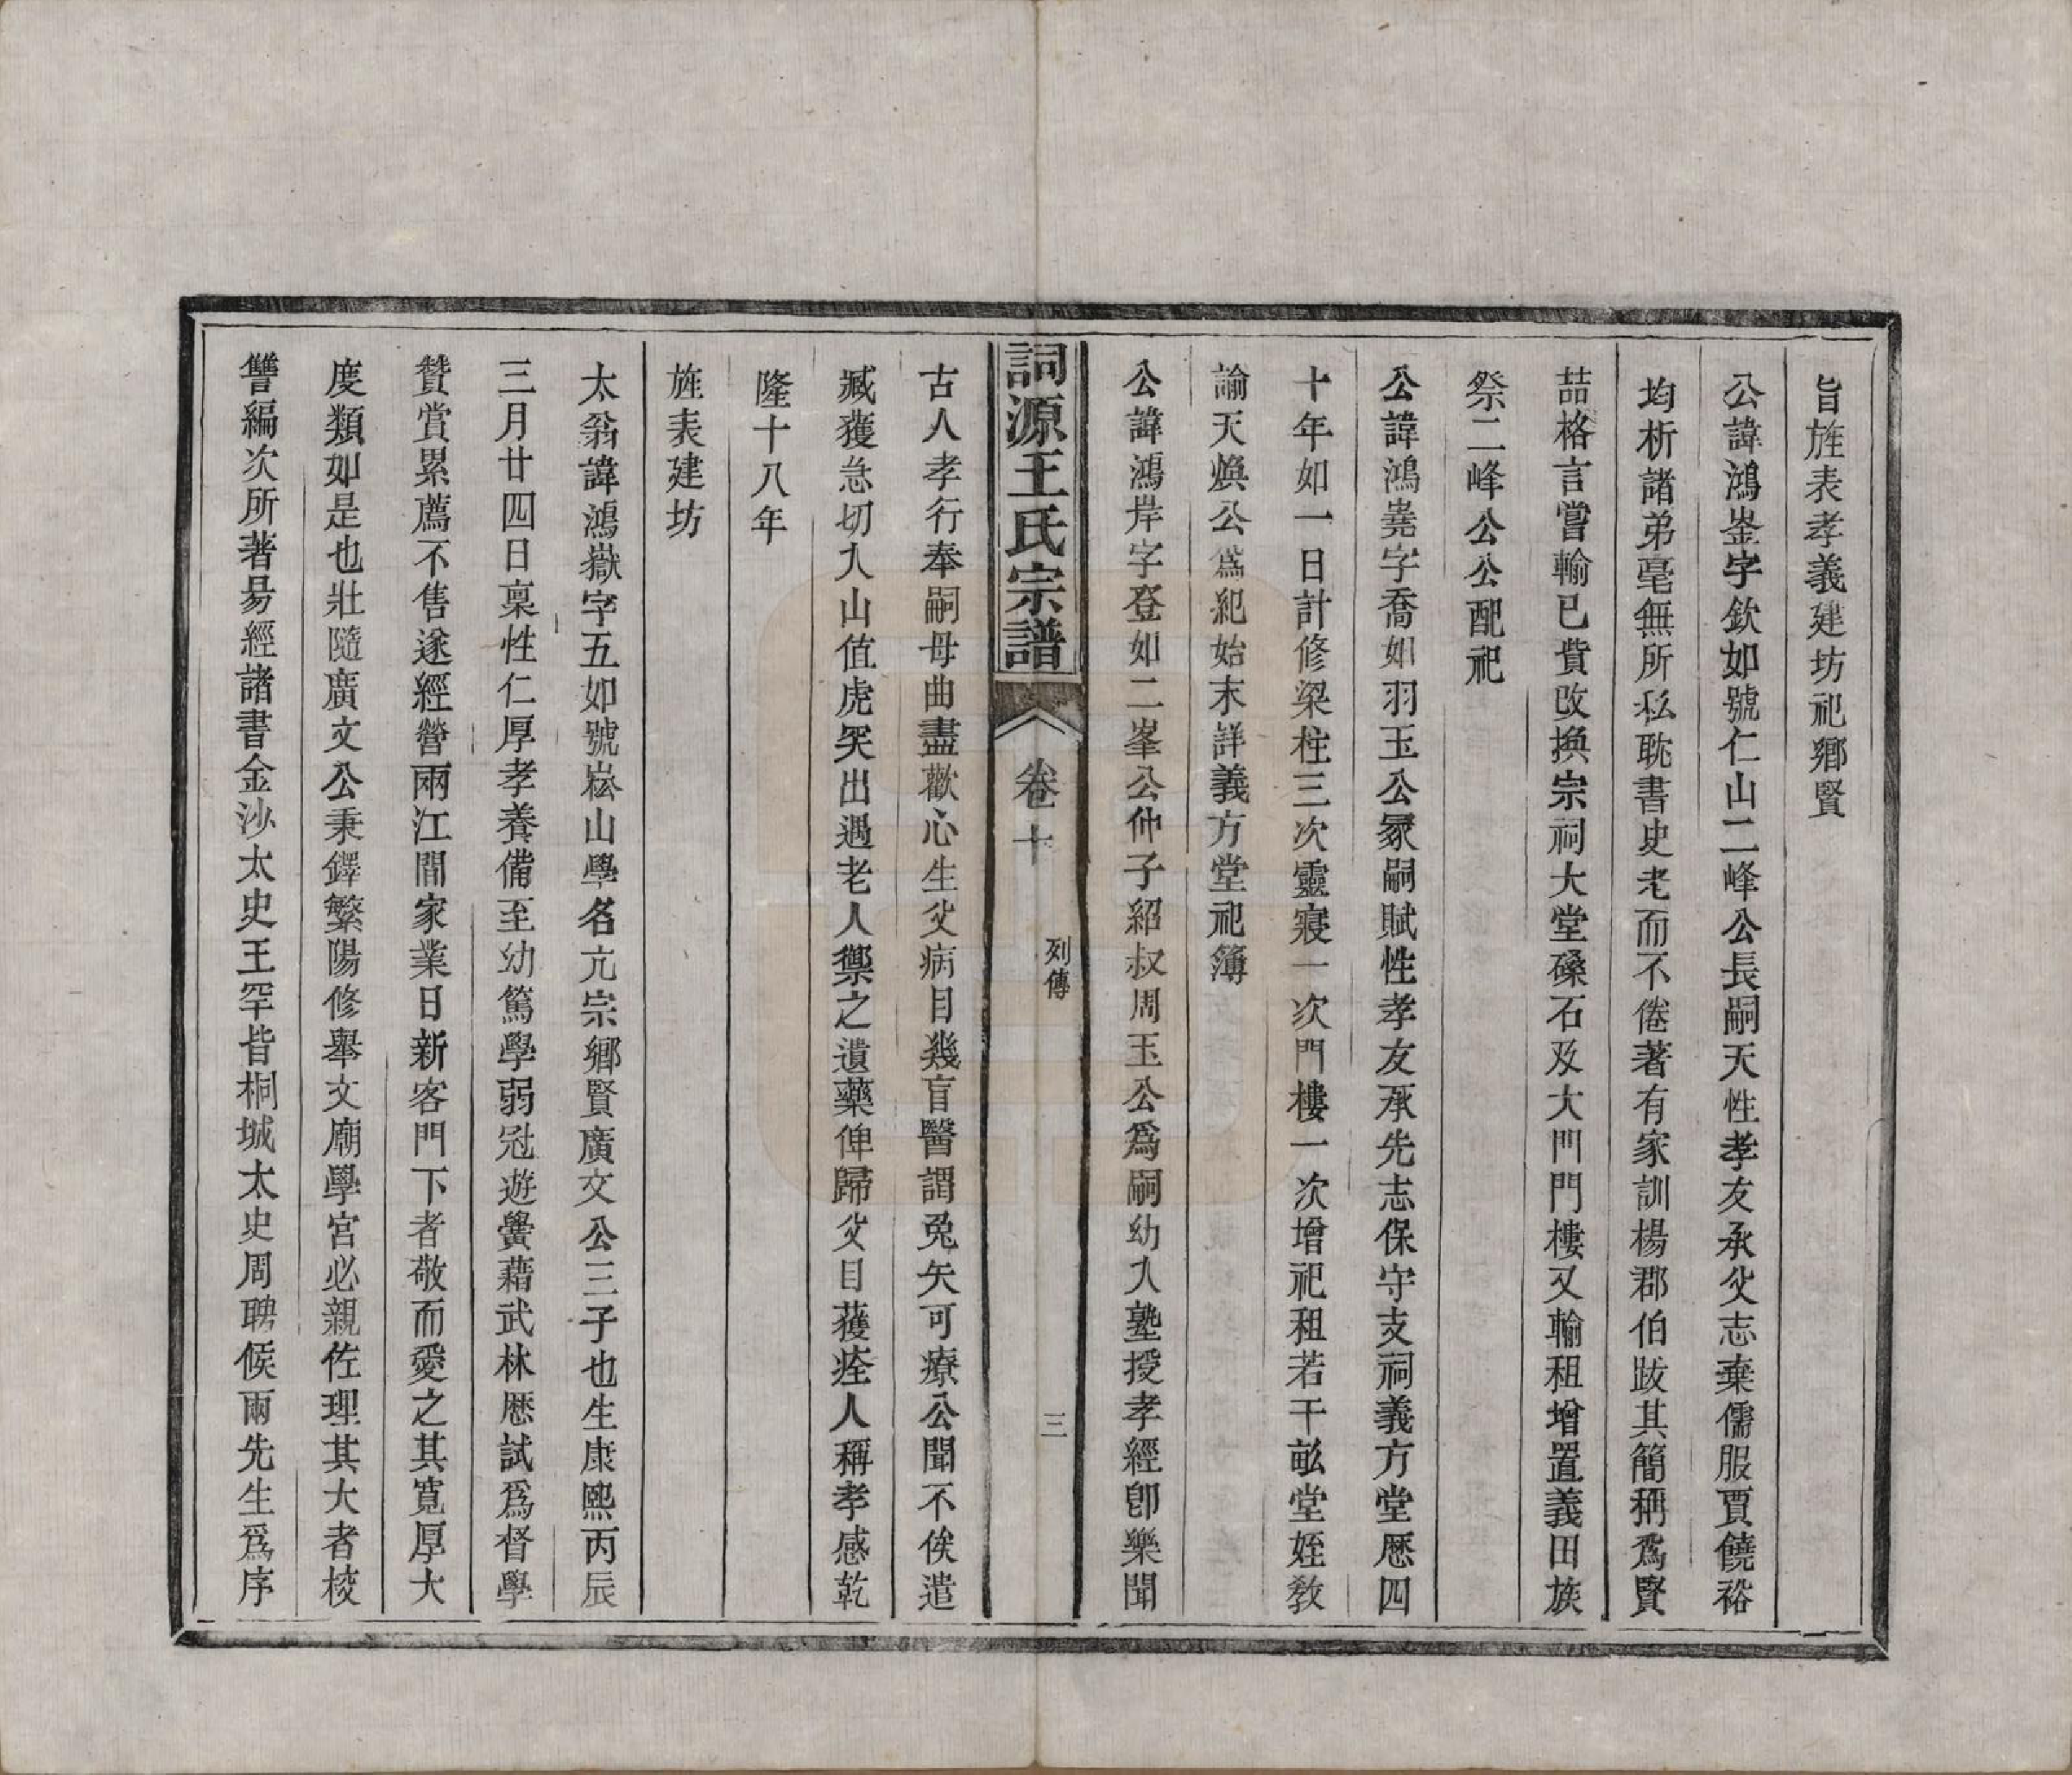 旨旌表孝義建坊祀鄉賢
公諱鴻崟字欽如號仁山二峰公長嗣天性孝友承父志棄儒服賈饒裕
均析諸弟毫無所私耽書史老而不倦著有家訓楊郡伯跋其簡稱爲賢
喆格言嘗輸已貲改換宗祠大堂磉石及大門門樓又輸租增置義田族
祭二峰公公配祀
公諱鴻㠓字喬如羽玉公冢嗣賦性孝友承先志保守支祠義方堂歷四
十年如一日計修梁柱三次靈寢一次門樓一次增祀租若干畝堂姪敎
諭天煥公爲紀始末詳義方堂祀簿
公諱鴻岸字登如二峯公仲子紹叔周玉公爲嗣幼入塾授孝經卽樂聞
詞源王氏宗譜 卷十 列傳 三
古人孝行奉嗣母曲盡歡心生父病目幾盲醫謂兔矢可療公聞不俟遣
臧獲急切入山值虎矢出遇老人禦之遺藥俾歸父目獲痊人稱孝感乾
隆十八年
旌表建坊
太翁諱鴻嶽字五如號崧山學名亢宗鄉賢廣文公三子也生康熙丙辰
三月廿四日稟性仁厚孝養備至幼篤學弱冠遊黌藉武林歷試爲督學
贊賞累薦不售遂經營兩江間家業日新客門下者敬而愛之其寬厚大
度類如是也壯隨廣文公秉鐸繁陽修舉文廟學宮必親佐理其大者校
讐編次所著易經諸書金沙太史王罕皆桐城太史周聘候兩先生爲序